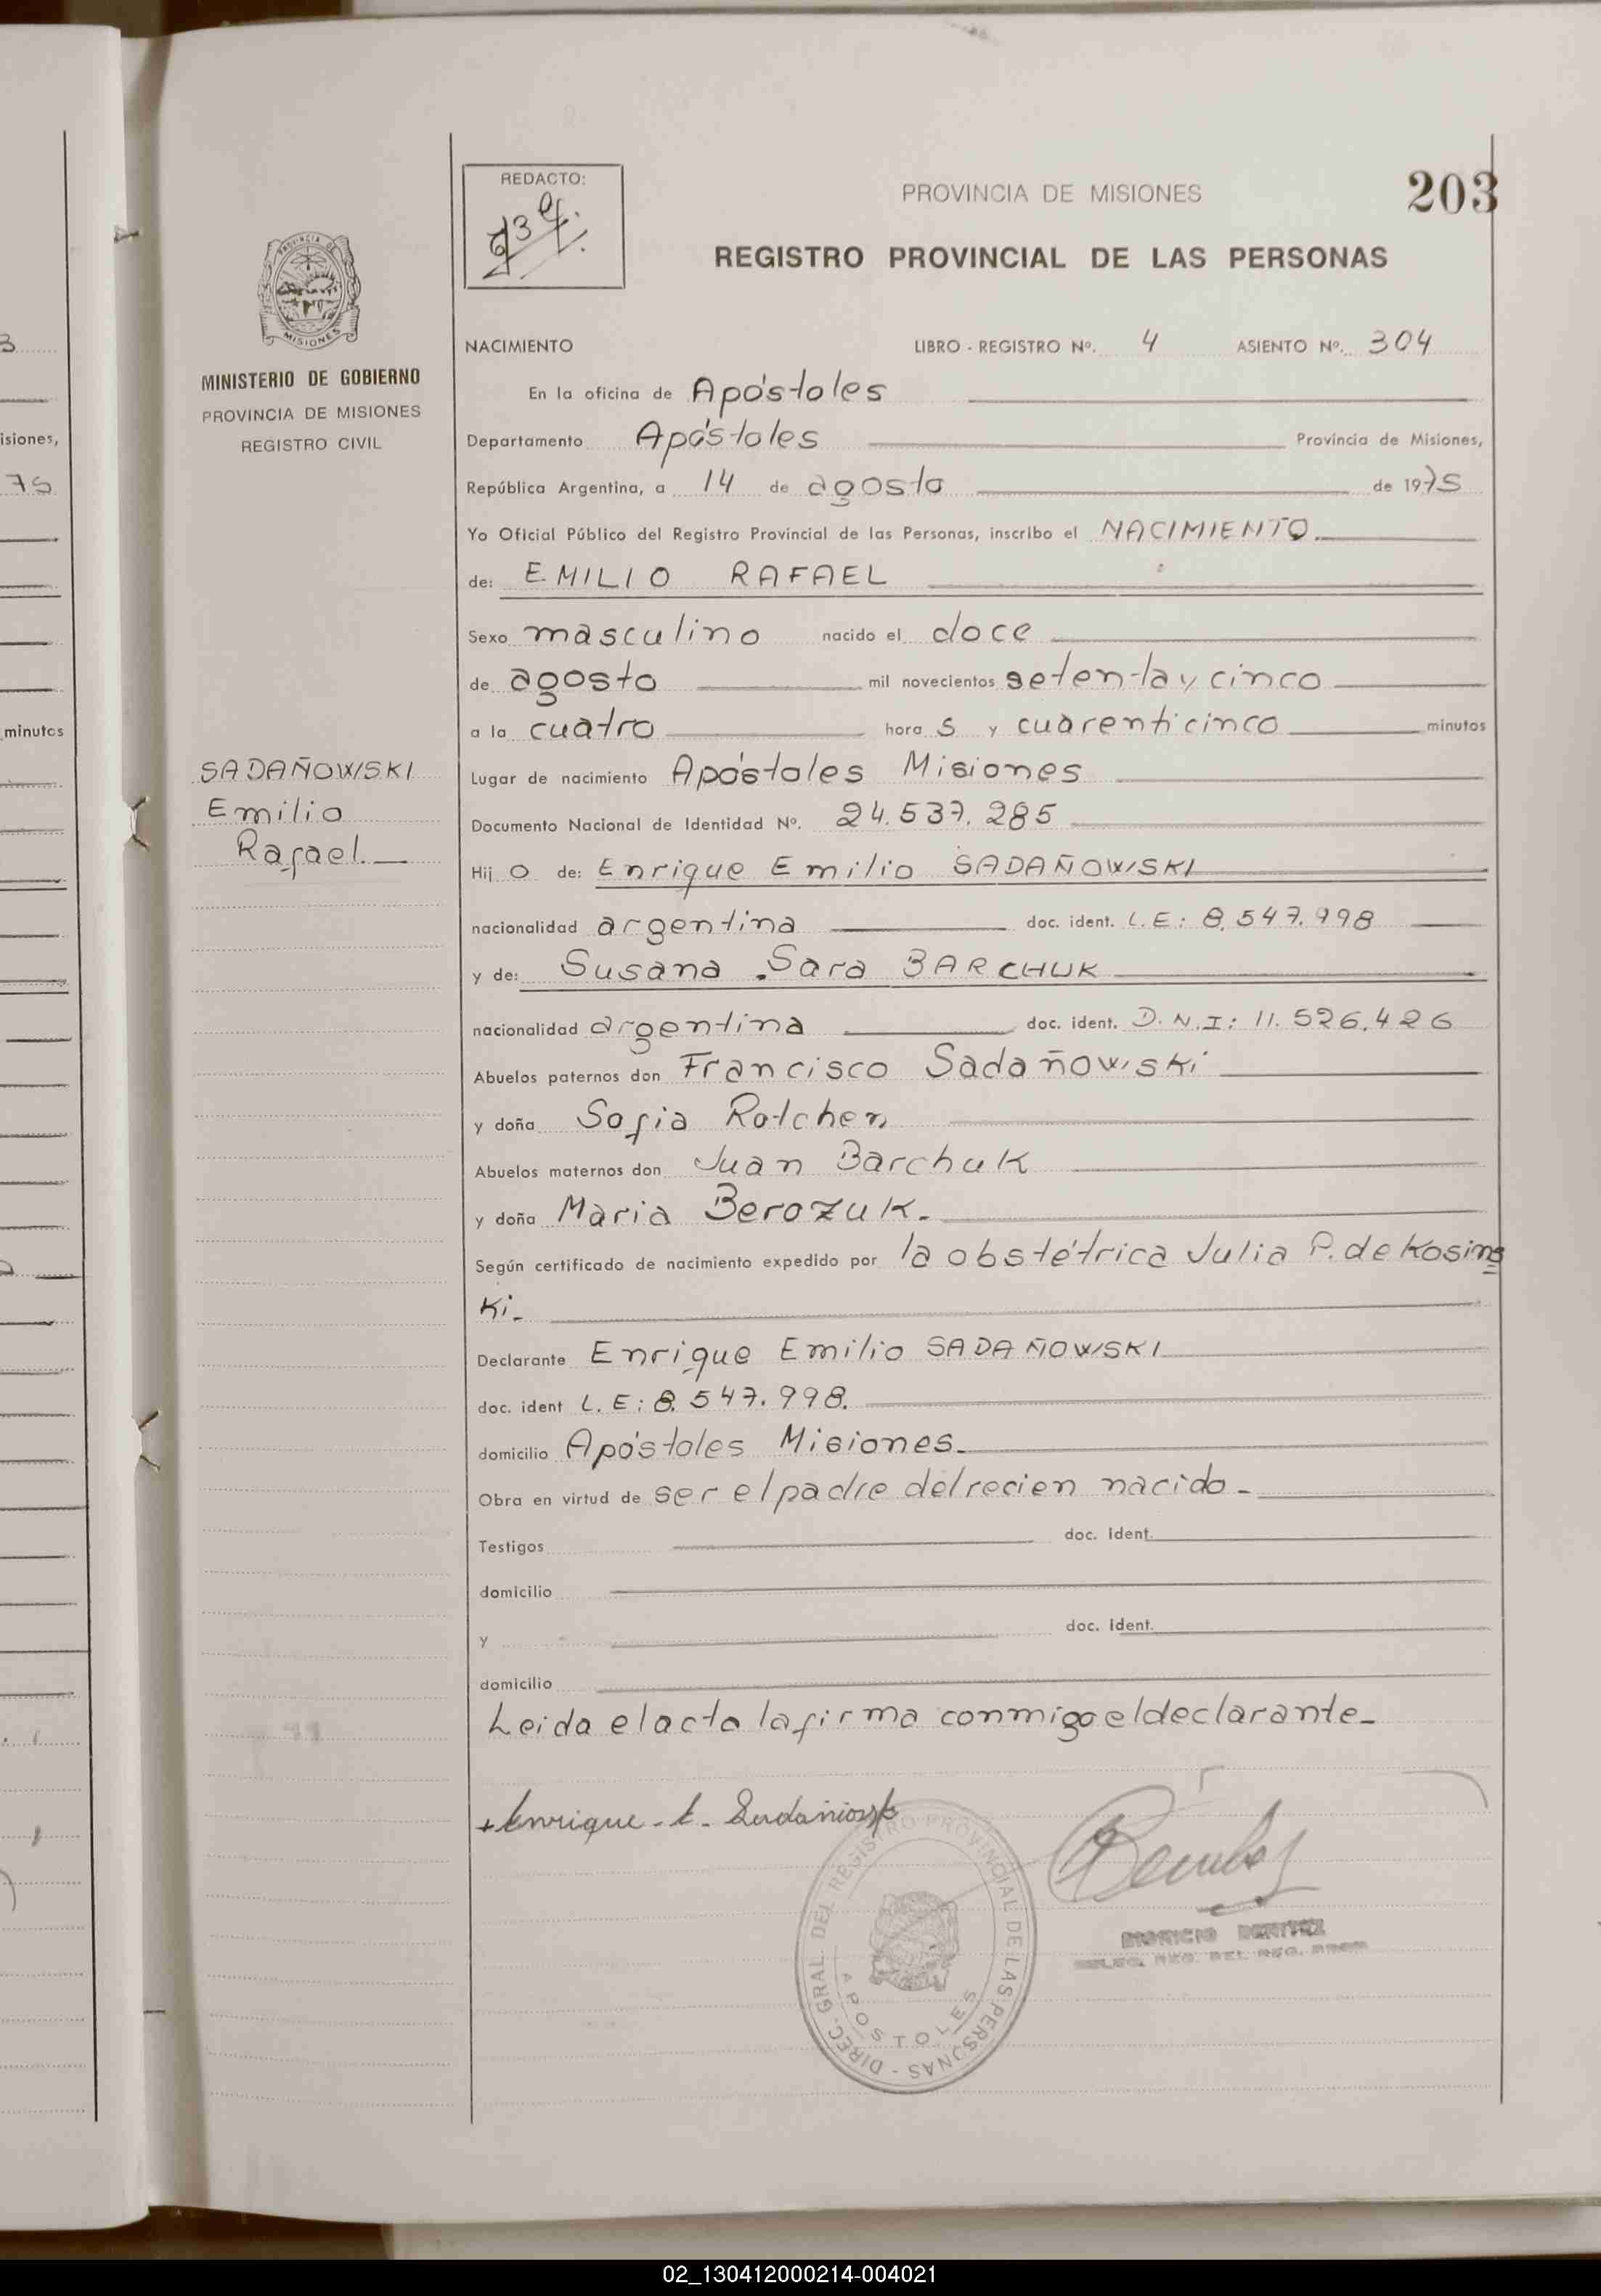 REDACTO:
PROVINCIA DE MISIONES
203
REGISTRO PROVINCIAL DE LAS PERSONAS
MISIONES
MINISTERIO DE GOBIERNO
PROVINCIA DE MISIONES
REGISTRO CIVIL
SADAÑOWSKI
Emilio
Rafael.
NACIMIENTO LIBRO - REGISTRO Nº. 4 ASIENTO Nº. 304
En la oficina de Apóstoles
Departamento Apóstoles Provincia de Misiones,
República Argentina, a 14 de agosto de 1975
Yo Oficial Público del Registro Provincial de las Personas, inscribo el NACIMIENTO
de: EMILIO RAFAEL
Sexo masculino nacido el doce
de agosto mil novecientos setenta y cinco
a la cuatro hora s y cuarenticinco minutos
Lugar de nacimiento Apóstoles Misiones
Documento Nacional de Identidad Nº. 24.537.285
Hij o de: Enrique Emilio SADAÑOWSKI
nacionalidad argentina doc. ident. L.E: 8.547.998
y de: Susana Sara BARCHUK
nacionalidad argentina doc. ident. D.N.I: 11.526.426
Abuelos paternos don Francisco Sadañowski
y doña Sofia Rotchen
Abuelos maternos don Juan Barchuk
y doña Maria Berozuk.
Según certificado de nacimiento expedido por la obstétrica Julia P. de Kosins
ki.
Declarante Enrique Emilio SADAÑOWSKI
doc. ident L.E: 8.547.998.
domicilio Apóstoles Misiones.
Obra en virtud de ser el padre del recien nacido.
Testigos doc. ident.
domicilio
y doc. ident.
domicilio
Leida el acta la firma conmigo el declarante.
Enrique E.
DIREC. GRAL. DEL REGISTRO PROVINCIAL DE LAS PERSONAS -
APOSTOLES
BENITEZ
isiones,
75
minutos
02_130412000214-004021